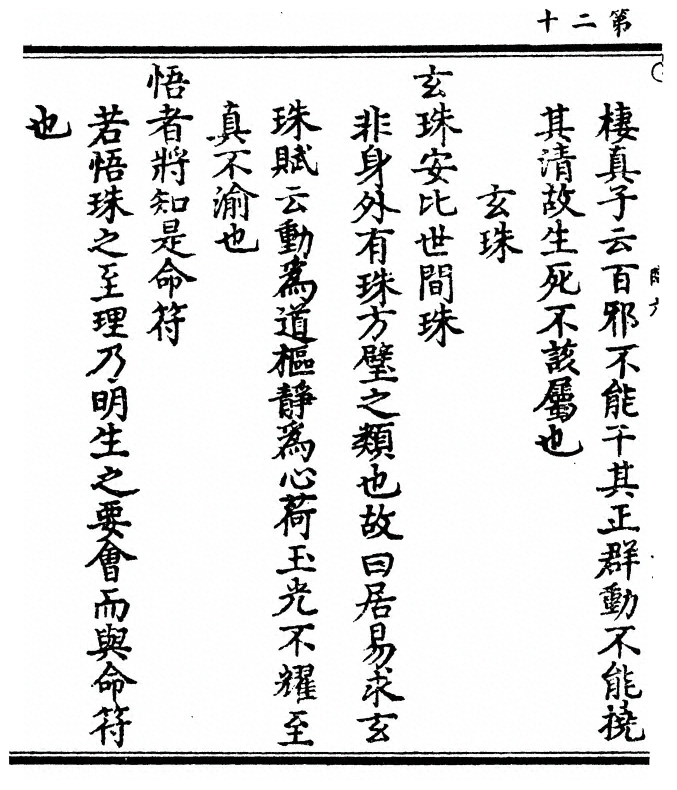 第二十
棲真子云百邪不能干其正群動不能撓
其清故生死不該屬也
玄珠
玄珠安比世間珠
非身外有珠方璧之類也故曰居易求玄
珠賦云動爲道樞靜爲心荷玉光不耀至
真不渝也
悟者將知是命符
若悟珠之至理乃明生之要會而與命符
也